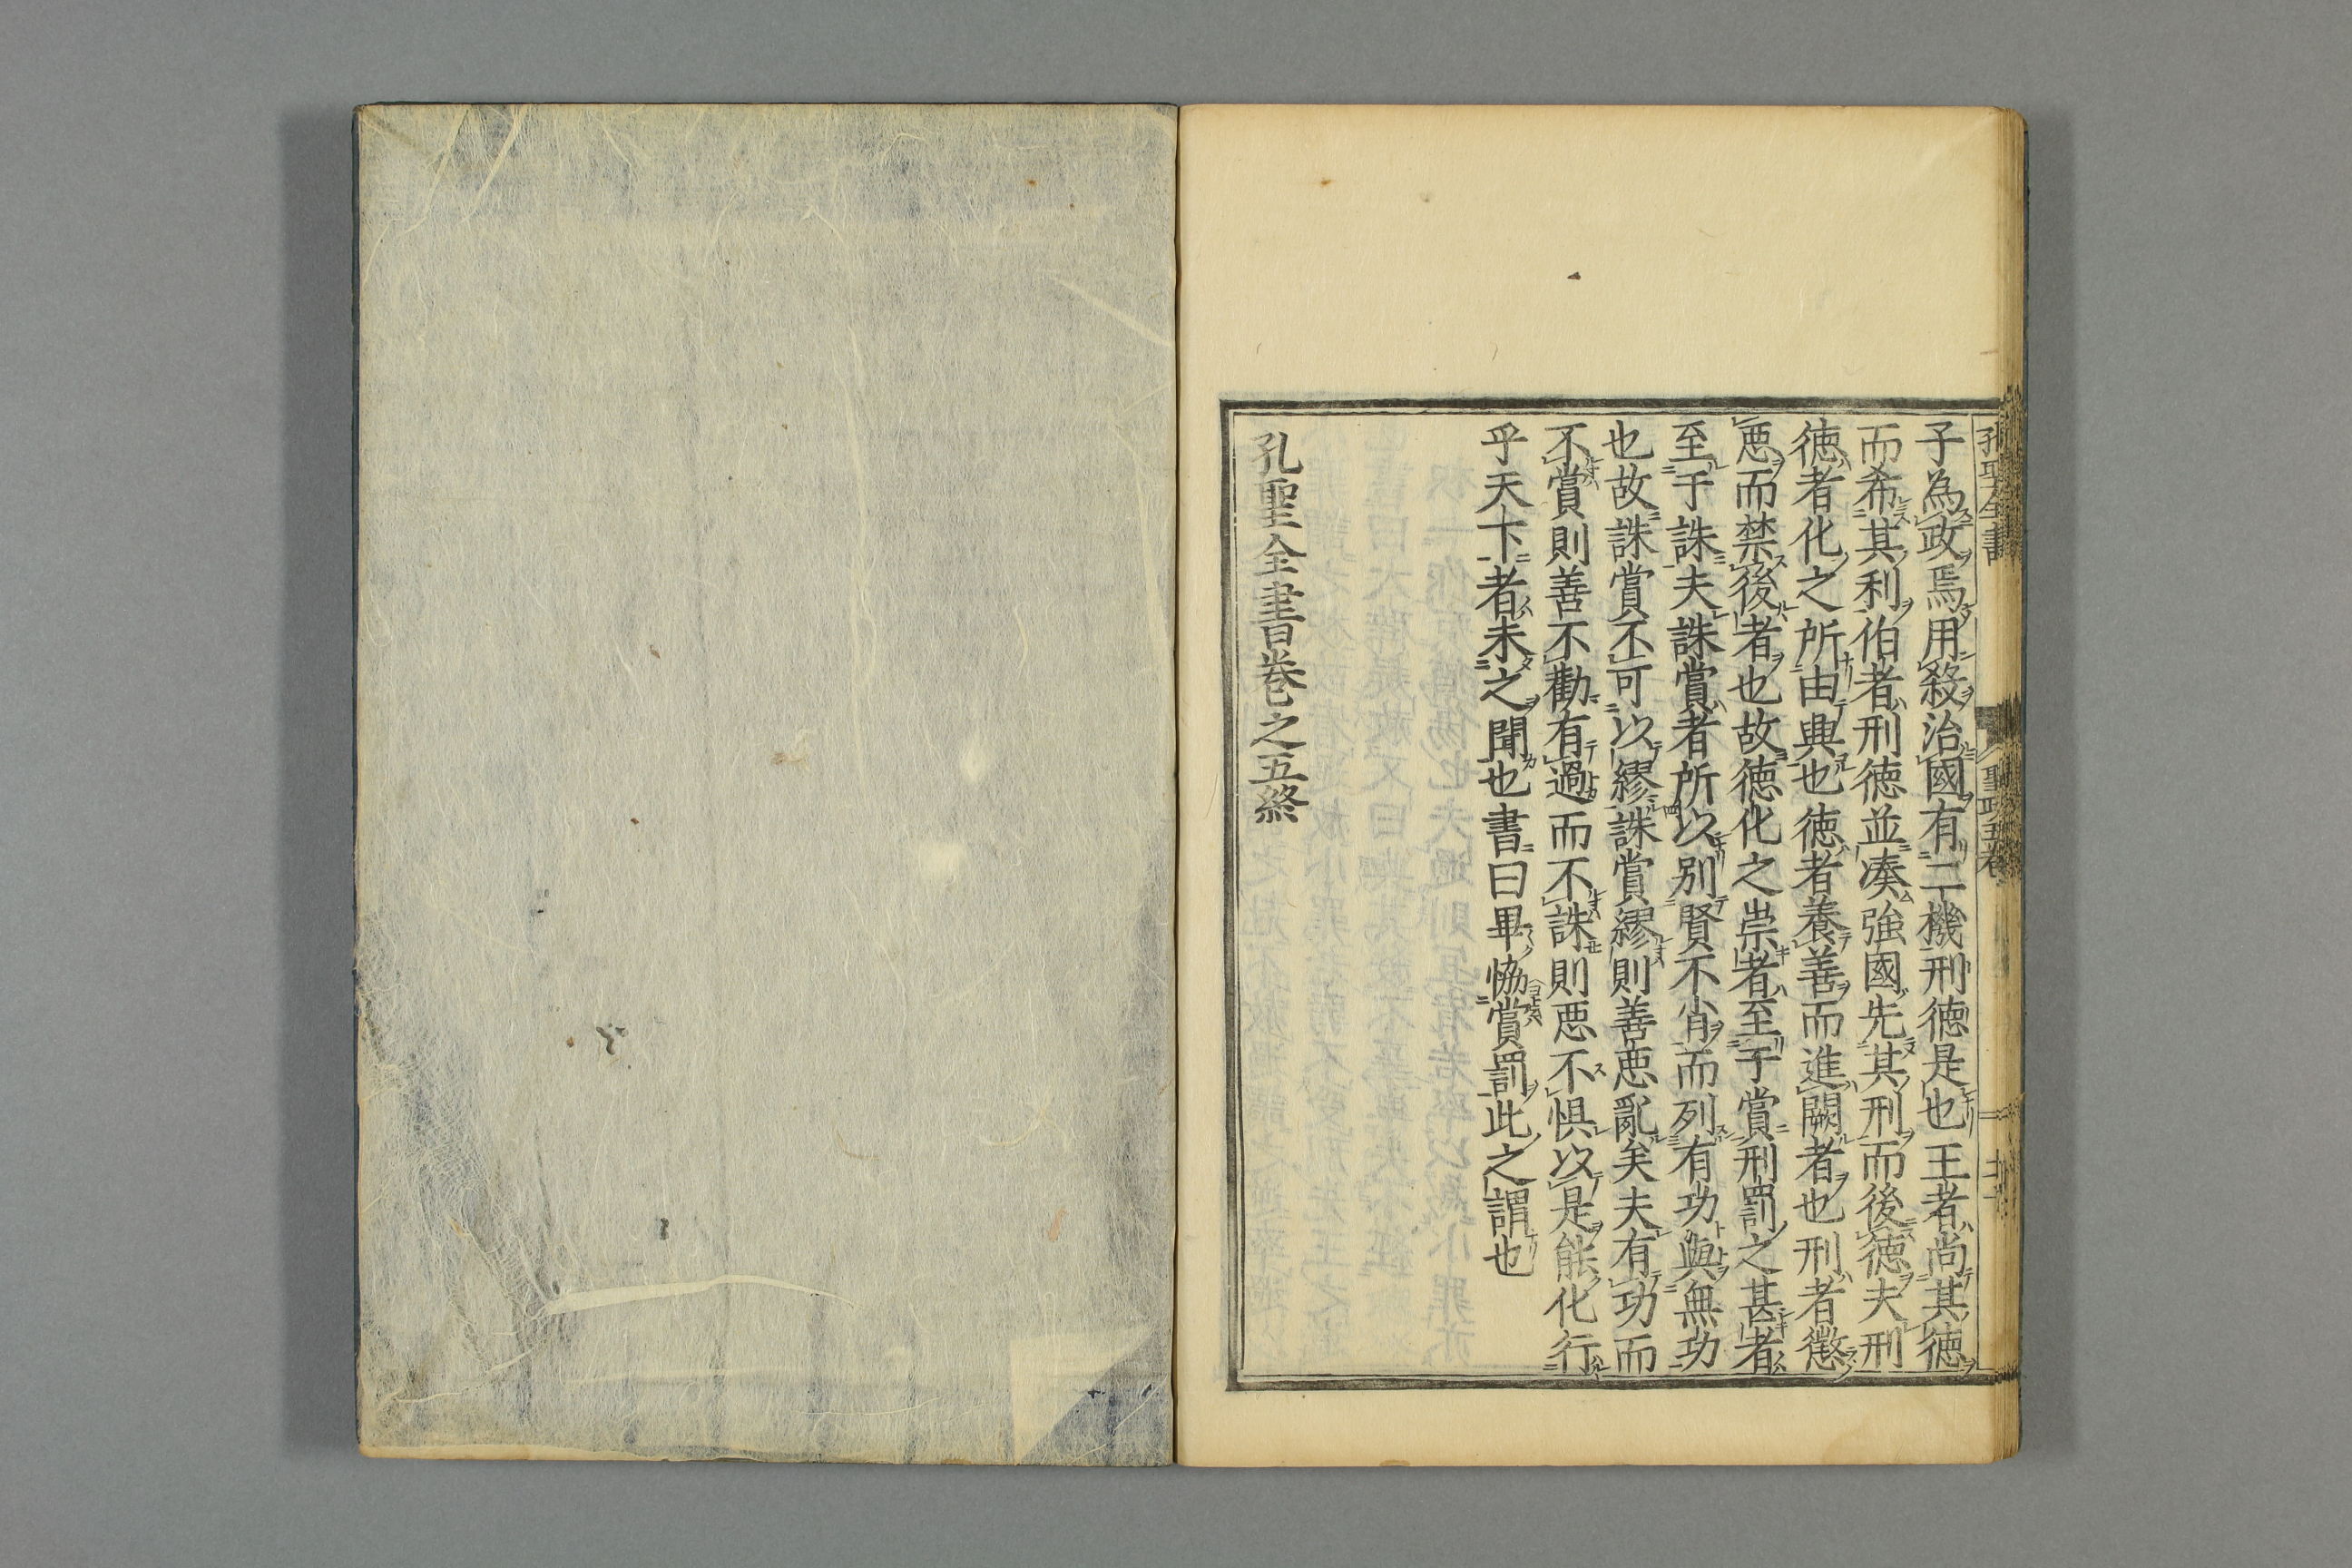 孔聖全書
子為政焉用殺治國有二機刑徳是也王者尚其徳
而希其利伯者刑徳並凑強國先其刑而後徳夫刑
徳者化之所由興也徳者養善而進闕者也刑者懲
悪而禁後者也故徳化之崇者至于賞刑罰之甚者
至于誅夫誅賞者所以别賢不肖而列有功與無功
也故誅賞不可以繆誅賞繆則善悪亂矣夫有功而
不賞則善不勸有過而不誅則悪不惧以是能化行
乎天下者未之聞也書曰畢恊賞罰此之謂也
孔聖全書卷之五終